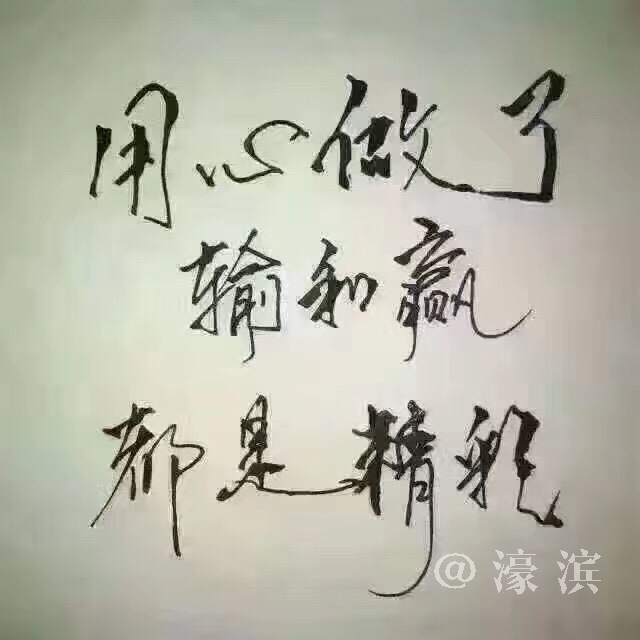 用心做了
输和赢
都是精彩
@濠滨